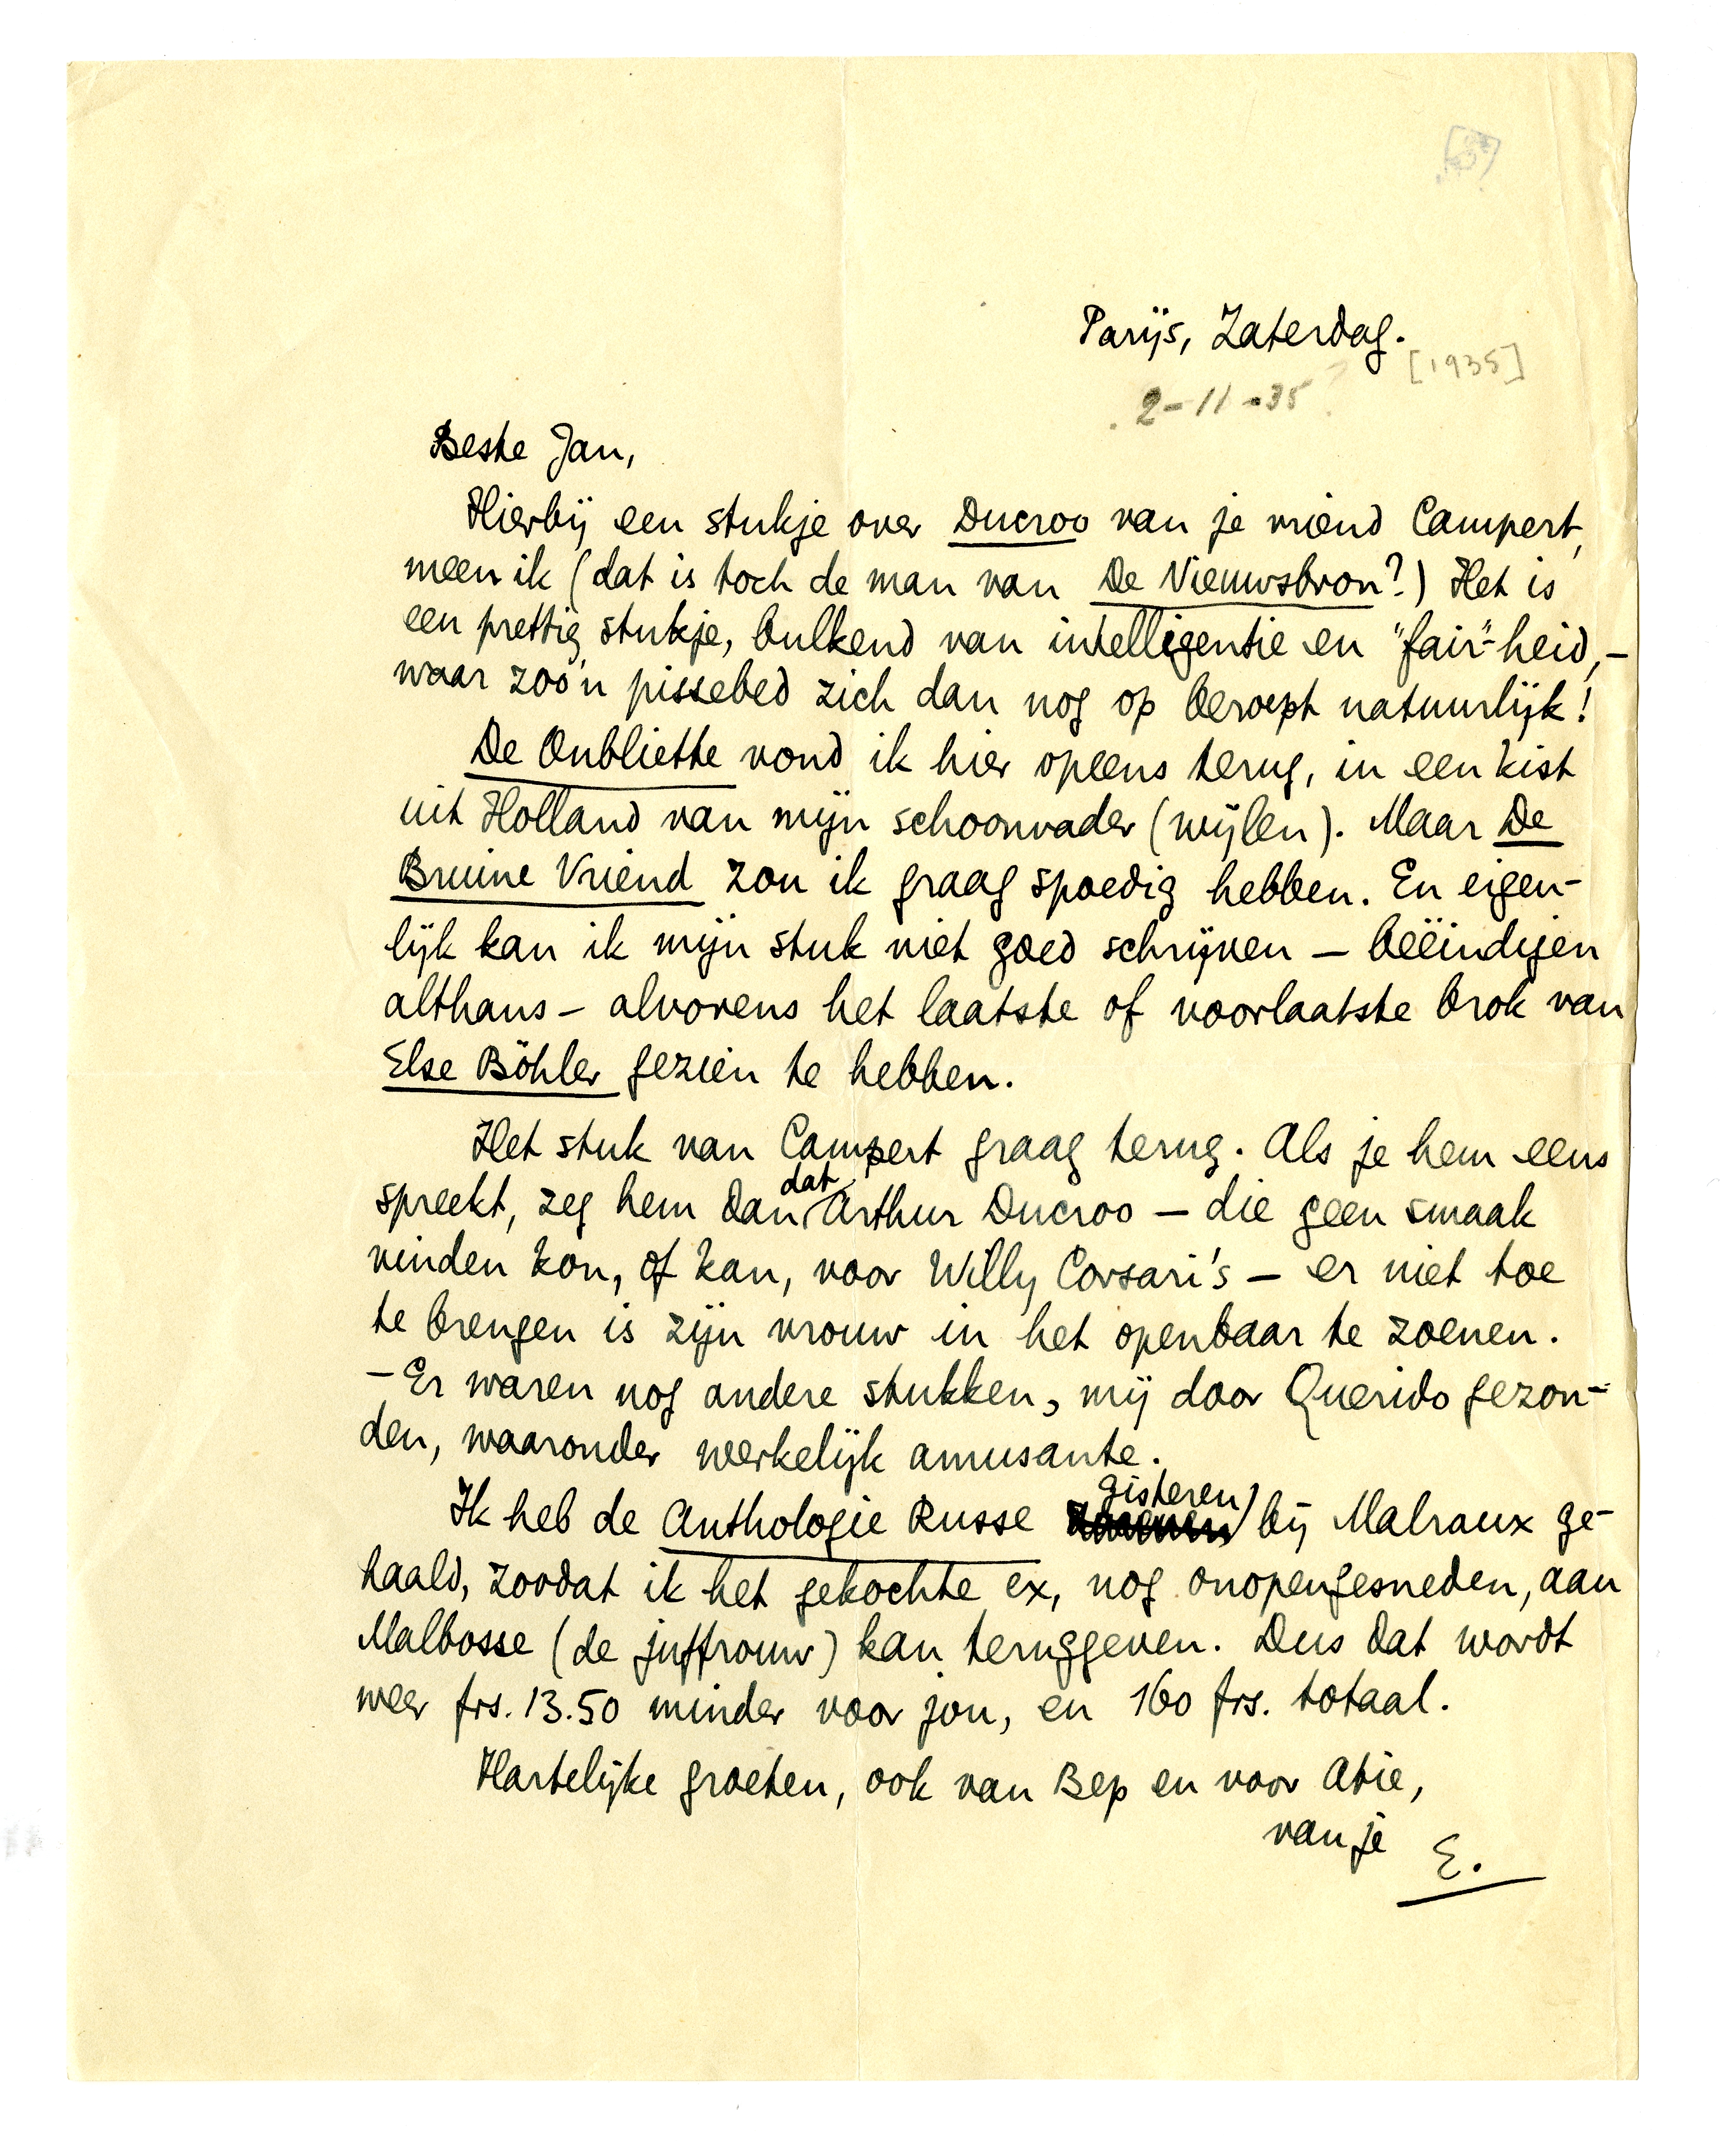 Parijs, Zaterdag.
[1935]
2-11-35
Beste Jan,
Hierbij een stukje over Ducroo van je vriend Campert,
meen ik (dat is toch de man van De Nieuwsbron?) Het is
een prettig stukje, bulkend van intelligentie en "fair"-heid, –
waar zoo'n pissebed zich dan nog op beroept natuurlijk!
De Oubliette vond ik hier opeens terug, in een kist
uit Holland van mijn schoonvader (wijlen). Maar De
Bruine Vriend zou ik graag spoedig hebben. En eigen-
lijk kan ik mijn stuk niet goed schrijven – beëindigen
althans – alvorens het laatste of voorlaatste brok van
Else Böhler gezien te hebben.
Het stuk van Campert graag terug. Als je hem eens
spreekt, zeg hem dan dat Arthur Ducroo – die geen smaak
vinden kon, of kan, voor Willy Corsari's – er niet toe
te brengen is zijn vrouw in het openbaar te zoenen.
– Er waren nog andere stukken, mij door Querido gezon-
den, waaronder werkelijk amusante.
Ik heb de Anthologie Russe gisteren bij Malraux ge-
haald, zoodat ik het gekochte ex, nog onopengesneden, aan
Malbosse (de juffrouw) kan teruggeven. Dus dat wordt
weer frs. 13.50 minder voor jou, en 160 frs. totaal.
Hartelijke groeten, ook van Bep en voor Atie,
van je E.